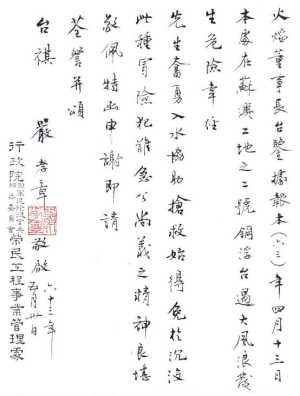 火燄董事長台鑒據報本(六三)年四月十三日
本處在蘇澳工地之二號鋼浮台遇大風浪發
生危險幸任
先生奮勇入水協助搶救始得免於沉沒
此種冒險犯難急公尚義之精神良堪
敬佩特函申謝即請
荃詧并頌
台祺
嚴孝章 敬啟
六十三年
五月廿日
行政院國軍退除役官兵輔導委員會榮民工程事業管理處